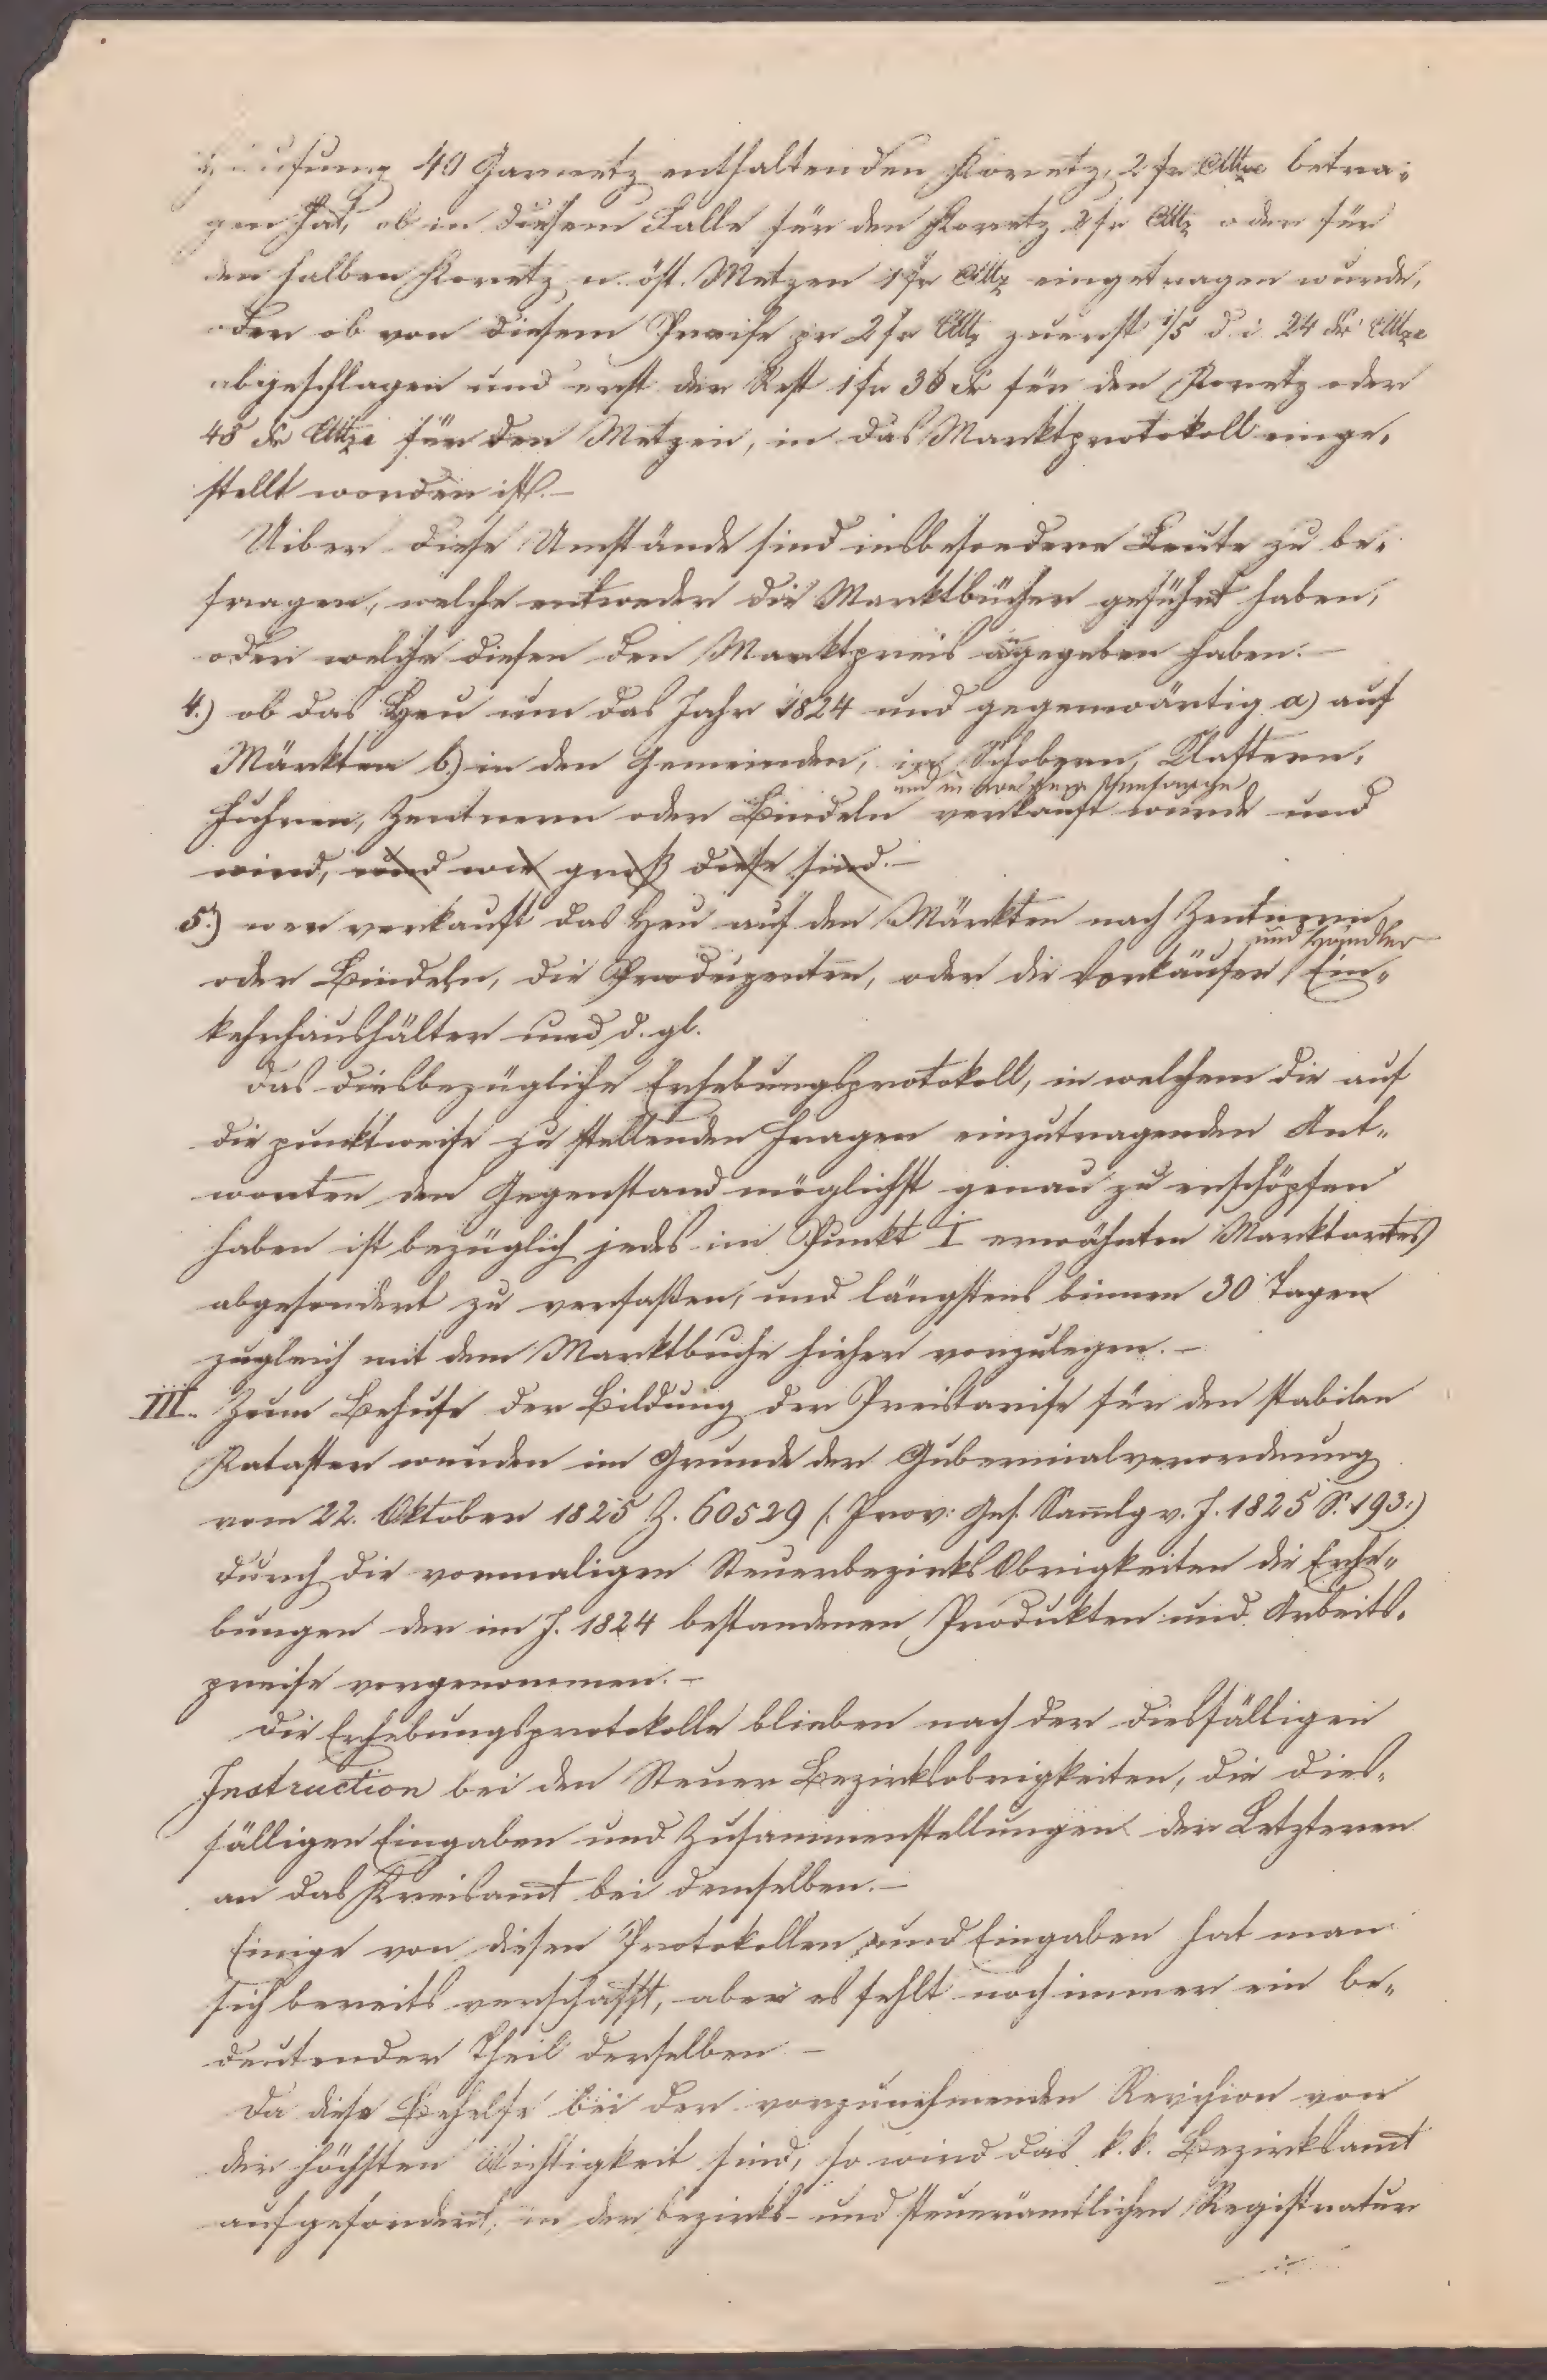 Häufung 40 Garnetz enthaltenden Koretz, 2 fr CMze betra-
gen hat, ob in diesem Falle für den Koretz 2 fr CMz oder für
den halben Koretz n. öst. Metzen 1 fr CMz eingetragen wurde,
oder ob von diesem Preise pr 2 fr CMz zuerst 1/5 d. i. 24 kr CMze
abgeschlagen und erst der Rest 1 fr 36 kr für den Koretz oder
48 kr CMze für den Metzen, in das Marktprotokoll einge-
stellt worden ist.–
Uiber diese Umstände sind insbesondere Leute zu be-
fragen, welche entweder die Marktbücher geführt haben,
oder welche diesen den Marktpreis angegeben haben.–
4.) ob das Heu um das Jahr 1824 und gegenwärtig a) auf
Märkten b) in den Gemeinden, in Schobern, Klaftern,
und in welchem
Fuhren, Zentnern oder Bindeln verkauft wurde und
wird, und wie groß diese sind.–
5.) wer verkauft das Heu auf den Märkten nach Zentnern
und Händler
oder Bindeln, die Produzenten, oder die Vorkäufer, Ein-
kehrhaushälter und d. gl.
Das diesbezügliche Erhebungsprotokoll, in welchem die auf
die punktweise zu stellenden Fragen einzutragenden Ant-
worten den Gegenstand möglichst genau zu erschöpfen
haben ist bezüglich jedes im Punkt I erwähnten Marktortes
abgesondert zu verfaßen, und längstens binnen 30 Tagen
zugleich mit dem Marktbuche hieher vorzulegen.–
III. Zum Behufe der Bildung der Preistarife für den stabilen
Kataster wurden im Grunde der Gubernialverordnung
vom 22. Oktober 1825 Z. 60529 (: Prov: Ges. Sam̄lg v. J. 1825 S. 193:)
durch die vormaligen SteuerbezirksObrigkeiten die Erhe-
bungen der im J. 1824 bestandenen Produkten und Arbeits-
preise vorgenommen.–
Die Erhebungsprotokolle blieben nach der diesfälligen
Instruction bei den Steuer Bezirksobrigkeiten, die dies-
fälligen Eingaben und Zusammenstellungen der Letzteren
an das Kreisamt bei demselben.–
Einige von diesen Protokollen und Eingaben hat man
sich bereits verschafft, aber es fehlt noch immer ein be-
deutender Theil derselben –
Da diese Behelfe bei der vorzunehmenden Revision von
der höchsten Wichtigkeit sind, so wird das k. k. Bezirksamt
aufgefordert, in der bezirks- und steuerämtlichen Registratur